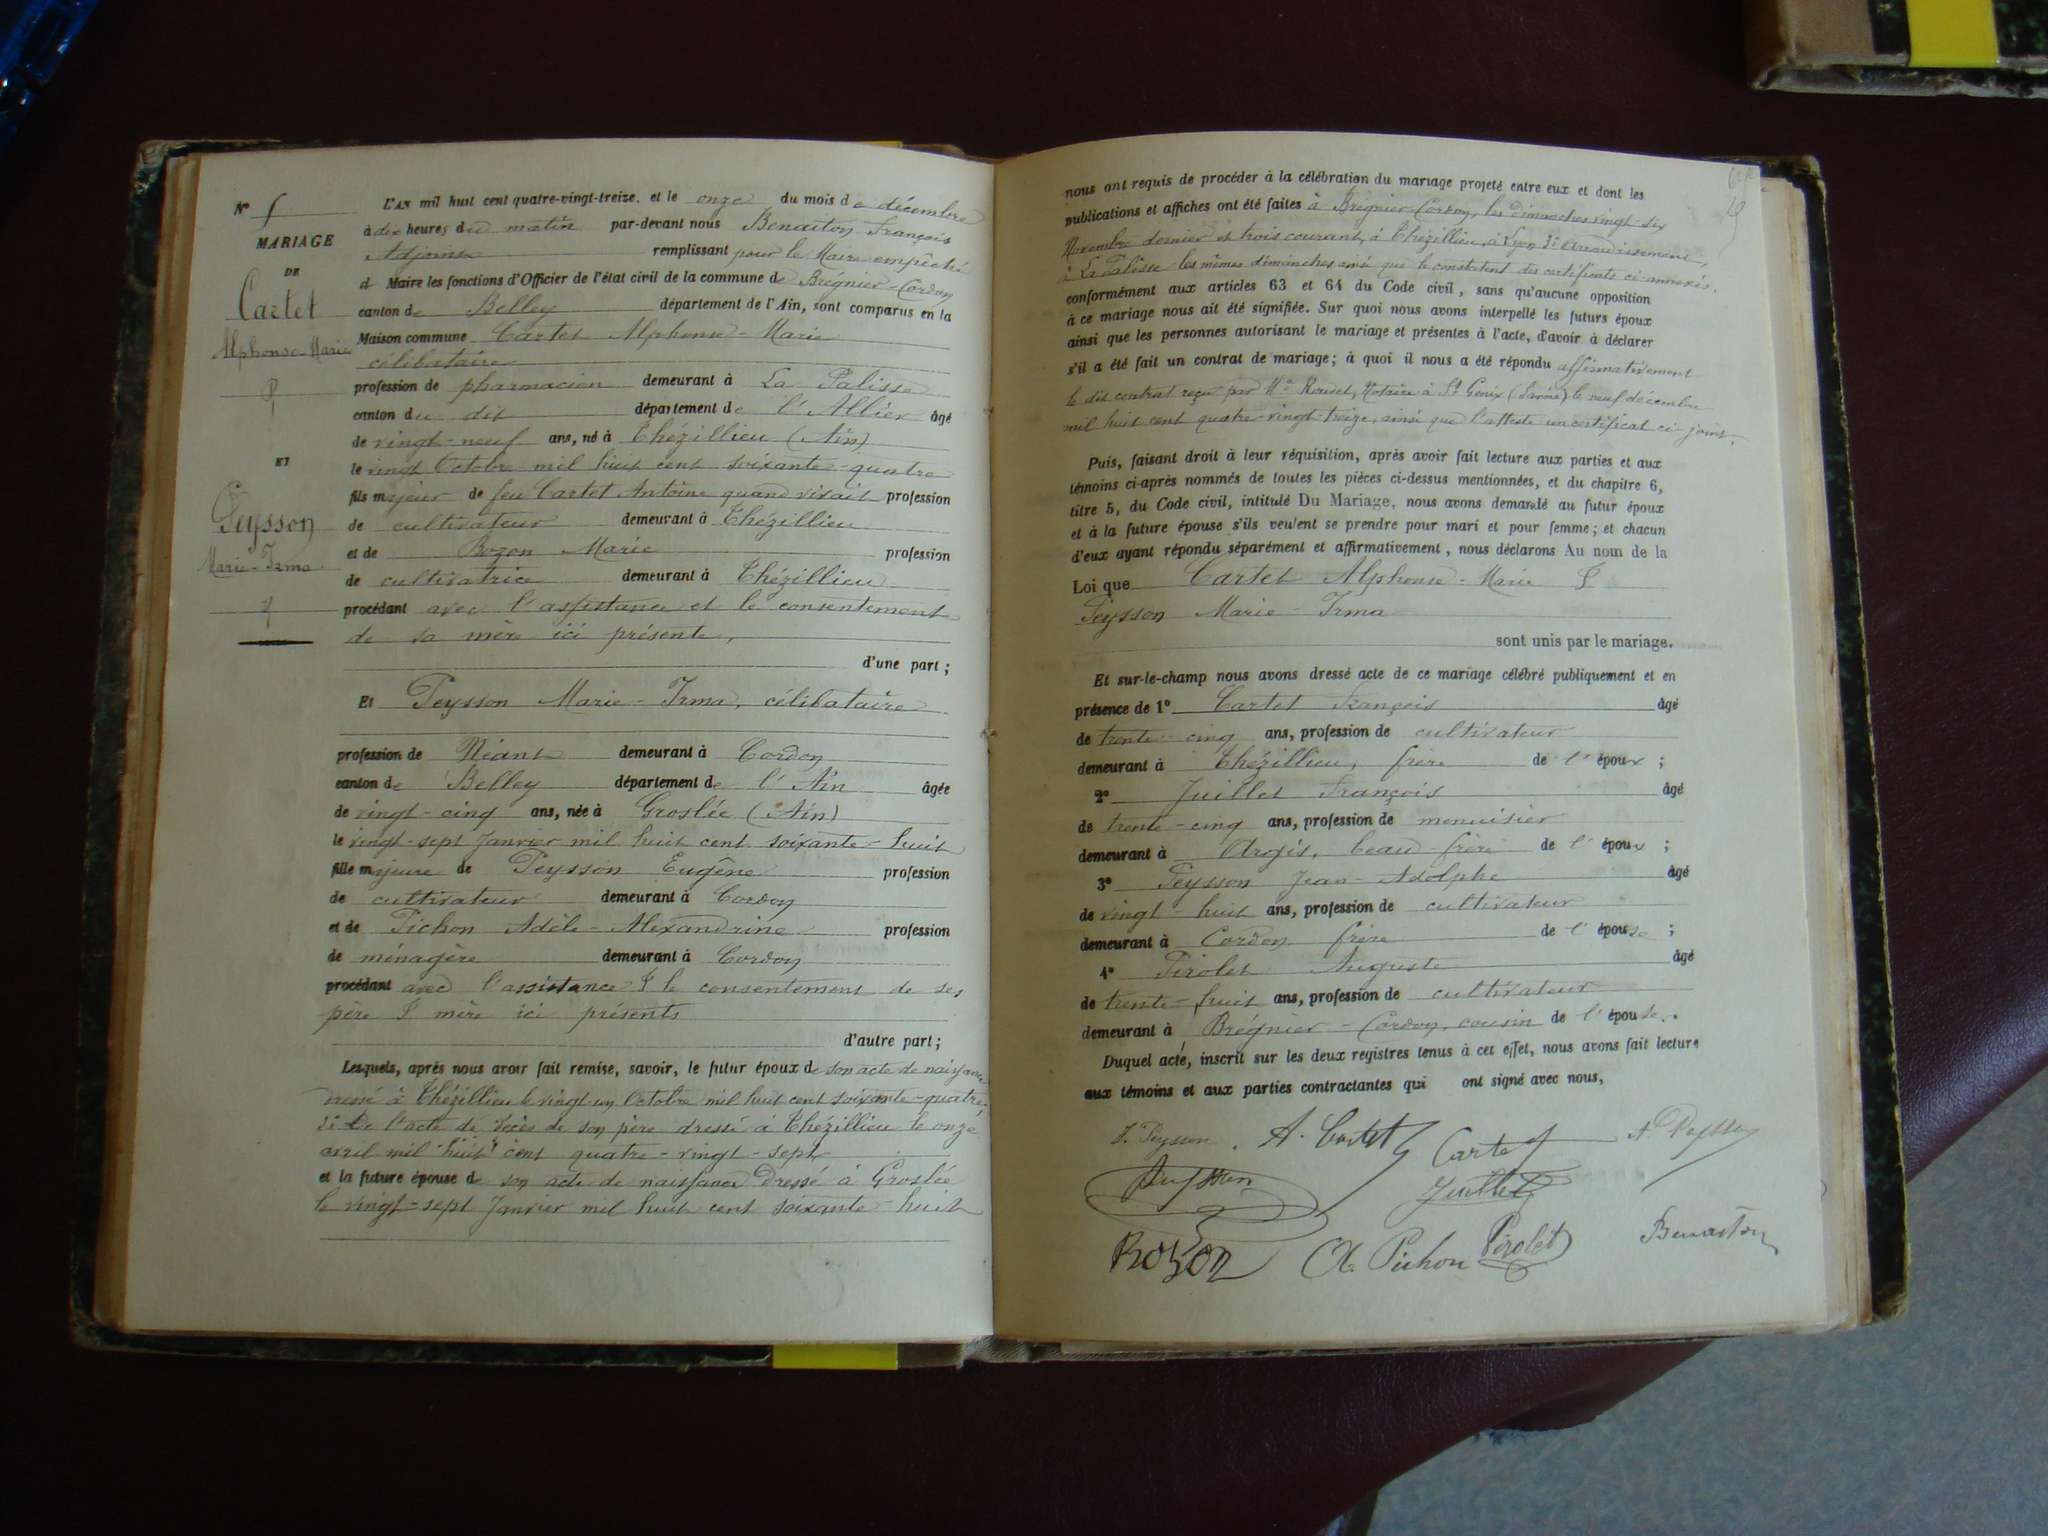 N° 5
MARIAGE
DE
Cartet
Alphonse-Marie
&
ET
Peysson
Marie-Irma
L'AN mil huit cent quatre-vingt-treize, et le onze du mois de décembre
à dix heures du matin par-devant nous Benaiton François
Adjoint remplissant pour le Maire empêché
d Maire les fonctions d'Officier de l'état civil de la commune de Brégnier-Cordon
canton de Belley département de l'Ain, sont comparus en la
Maison commune Cartet Alphonse-Marie
célibataire
profession de pharmacien demeurant à La Palisse
canton du dit département de l'Allier âgé
de vingt-neuf ans, né à Thézillieu (Ain)
le vingt Octobre mil huit cent soixante-quatre
fils majeur de feu Cartet Antoine quand vivait profession
de cultivateur demeurant à Thézillieu
et de Bozon Marie profession
de cultivatrice demeurant à Thézillieu
procédant avec l'assistance et le consentement
de sa mère ici présente,
d'une part ;
Et Peysson Marie-Irma, célibataire
profession de Néant demeurant à Cordon
canton de Belley département de l'Ain âgée
de vingt-cinq ans, née à Groslée (Ain)
le vingt-sept Janvier mil huit cent soixante-huit
fille majeure de Peysson Eugène profession
de cultivateur demeurant à Cordon
et de Pichon Adèle-Alexandrine profession
de ménagère demeurant à Cordon
procédant avec l'assistance & le consentement de ses
père & mère ici présents
d'autre part ;
Lesquels, après nous avoir fait remise, savoir, le futur époux de son acte de naissance
dressé à Thézillieu le vingt un Octobre mil huit cent soixante-quatre,
de l'acte de décès de son père dressé à Thézillieu le onze
avril mil huit cent quatre-vingt-sept
et la future épouse de son acte de naissance dressé à Groslée
le vingt-sept Janvier mil huit cent soixante-huit
nous ont requis de procéder à la célébration du mariage projeté entre eux et dont les
publications et affiches ont été faites à Brégnier-Cordon, les dimanches vingt-six
Novembre dernier et trois courant, à Thézillieu, à Lyon 3e arrondissement,
à La Palisse les mêmes dimanches ainsi que le constatent des certificats ci-annexés.
conformément aux articles 63 et 64 du Code civil, sans qu'aucune opposition
à ce mariage nous ait été signifiée. Sur quoi nous avons interpellé les futurs époux
ainsi que les personnes autorisant le mariage et présentes à l'acte, d'avoir à déclarer
s'il a été fait un contrat de mariage ; à quoi il nous a été répondu affirmativement
le dit contrat reçu par Me Roudet, Notaire à St Genix (Savoie) le neuf décembre
mil huit cent quatre-vingt-treize, ainsi que l'atteste un certificat ci-joint.
Puis, faisant droit à leur réquisition, après avoir fait lecture aux parties et aux
témoins ci-après nommés de toutes les pièces ci-dessus mentionnées, et du chapitre 6,
titre 5, du Code civil, intitulé Du Mariage, nous avons demandé au futur époux
et à la future épouse s'ils veulent se prendre pour mari et pour femme ; et chacun
d'eux ayant répondu séparément et affirmativement, nous déclarons Au nom de la
Loi que Cartet Alphonse-Marie &
Peysson Marie-Irma
sont unis par le mariage.
Et sur-le-champ nous avons dressé acte de ce mariage célébré publiquement et en
présence de 1° Cartet François âgé
de trente-cinq ans, profession de cultivateur
demeurant à Thézillieu, frère de l'époux ;
2° Juillet François âgé
de trente-cinq ans, profession de menuisier
demeurant à Argis, beau-frère de l'époux ;
3° Peysson Jean-Adolphe âgé
de vingt-huit ans, profession de cultivateur
demeurant à Cordon frère de l'épouse ;
4° Pirolet Auguste âgé
de trente-huit ans, profession de cultivateur
demeurant à Brégnier-Cordon, cousin de l'épouse.
Duquel acte, inscrit sur les deux registres tenus à cet effet, nous avons fait lecture
aux témoins et aux parties contractantes qui ont signé avec nous,
I. Peysson A. Cartet Cartet A. Peysson
Peysson Juillet
Bozon A. Pichon Pirolet Benaiton